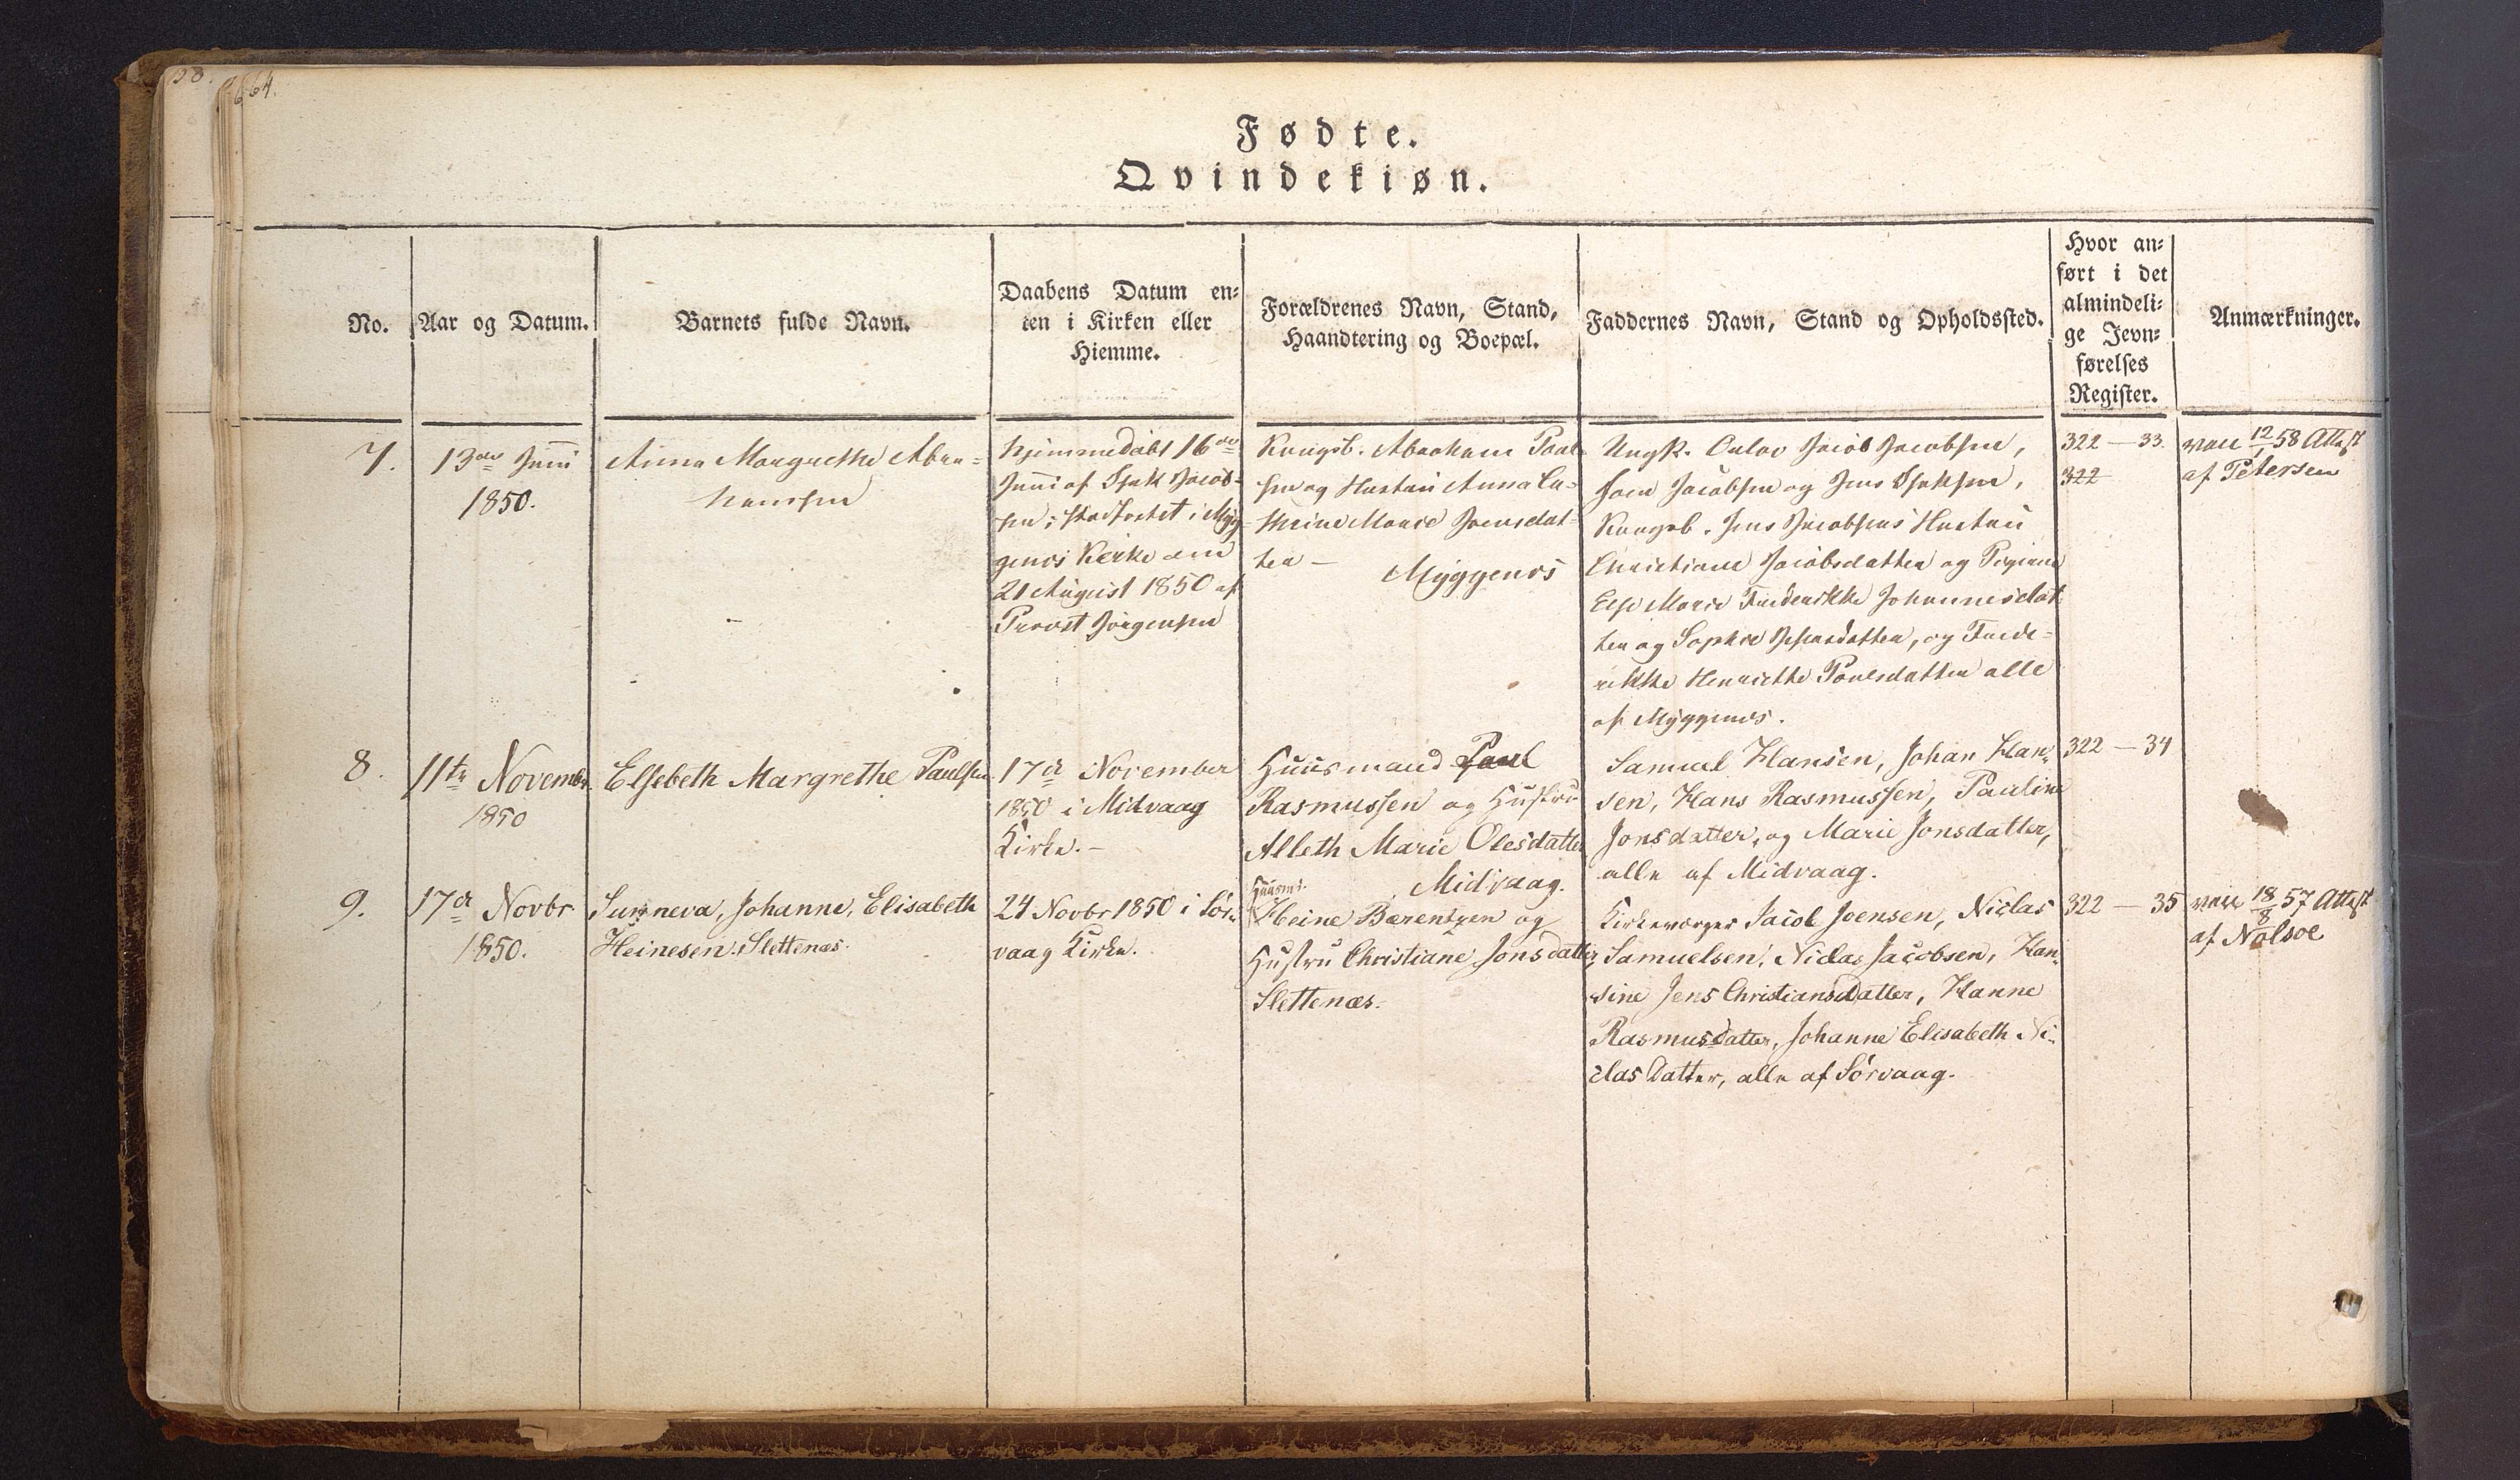 664.
Fødte.
Qvindekiøn.
No.
Aar og Datum.
Barnets fulde Navn.
Daabens Datum en-
ten i Kirken eller
Hiemme.
Forældrenes Navn, Stand,
Haandtering og Boepæl.
Faddernes Navn, Stand og Opholdssted.
Hvor an-
ført i det
almindeli-
ge Jevn-
førelses
Register.
Anmærkninger.
7.
13de Juni
1850.
Anna Margrethe Abra-
hamsen
Hjemmedøbt 16de
Juni af Isak Jacob-
sen; stadfæstet i Myg-
genæs Kirke den
21 August 1850 af
Provst Jørgensen
Kongsb. Abraham Poul-
sen og Hustru Anna Ca-
thrine Marie Joensdat-
ter – Myggenæs
Ungk. Oulav Jacob Jacobsen,
Joen Jacobsen og Jens Isaksen,
Kongsb. Jens Jacobsens Hustru
Christiane Jacobsdatter og Pigerne
Else Marie Frederikke Johannesdat
ter og Sophie Joensdatter, og Frede-
rikke Henriette Poulsdatter alle
af Myggenæs.
322 – 33.
322
vacc 12/ 58 Attest
af Petersen
8.
11te Novembr.
1850
Elsebeth Margrethe Paulsen
17de November
1850 i Midvaag
Kirke.–
Huusmand Paul
Rasmussen og Hustru
Alleth Marie Olesdatter
Midvaag.
Samuel Hansen, Johan Han-
sen, Hans Rasmussen, Pauline
Jonsdatter, og Marie Jonsdatter,
alle af Midvaag.
322 – 34
9.
17de Novbr
1850.
Sunneva, Johanne, Elisabeth
Heinesen. Slettenæs.
24 Novbr 1850 i Sør-
vaag Kirke.
Huusm.
Heine Barentzen og
Hustru Christiane Jonsdatter
Slettenæs.
Kirkeværger Jacob Joensen, Niclas
Samuelsen, Niclas Jacobsen, Han-
sine Jens Christiansdatter, Hanne
Rasmusdatter, Johanne Elisabeth Ni-
clas Datter, alle af Sørvaag.
322 – 35
vacc 18/8 57 Attest
af Nolsøe